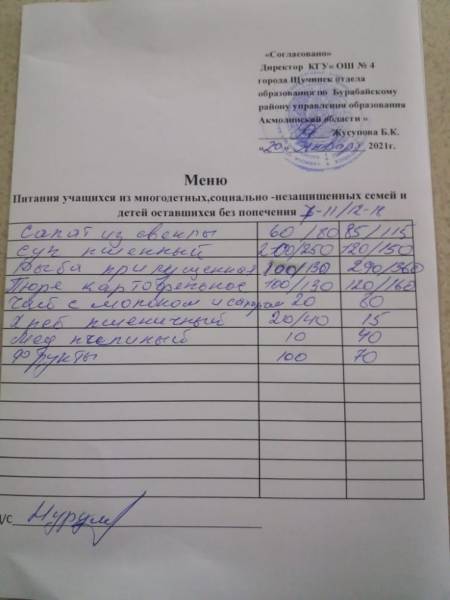 «Согласовано»
Директор КГУ« ОШ № 4
города Щучинск отдела
образования по Бурабайскому
району управления образования
Акмолинской области »
Жусупова Б.К.
«20» января 2021г.
Меню
Питания учащихся из многодетных,социально -незащищенных семей и
детей оставшихся без попечения 7-11/12-18
Салат из свеклы 60/80 85/115
Суп пшенный 200/250 120/150
Рыба припущенная 100/130 290/360
Пюре картофельное 100/130 120/160
Чай с молоком и сахаром 20 60
Хлеб пшеничный 20/40 15
Мед пчелиный 10 40
Фрукты 100 70